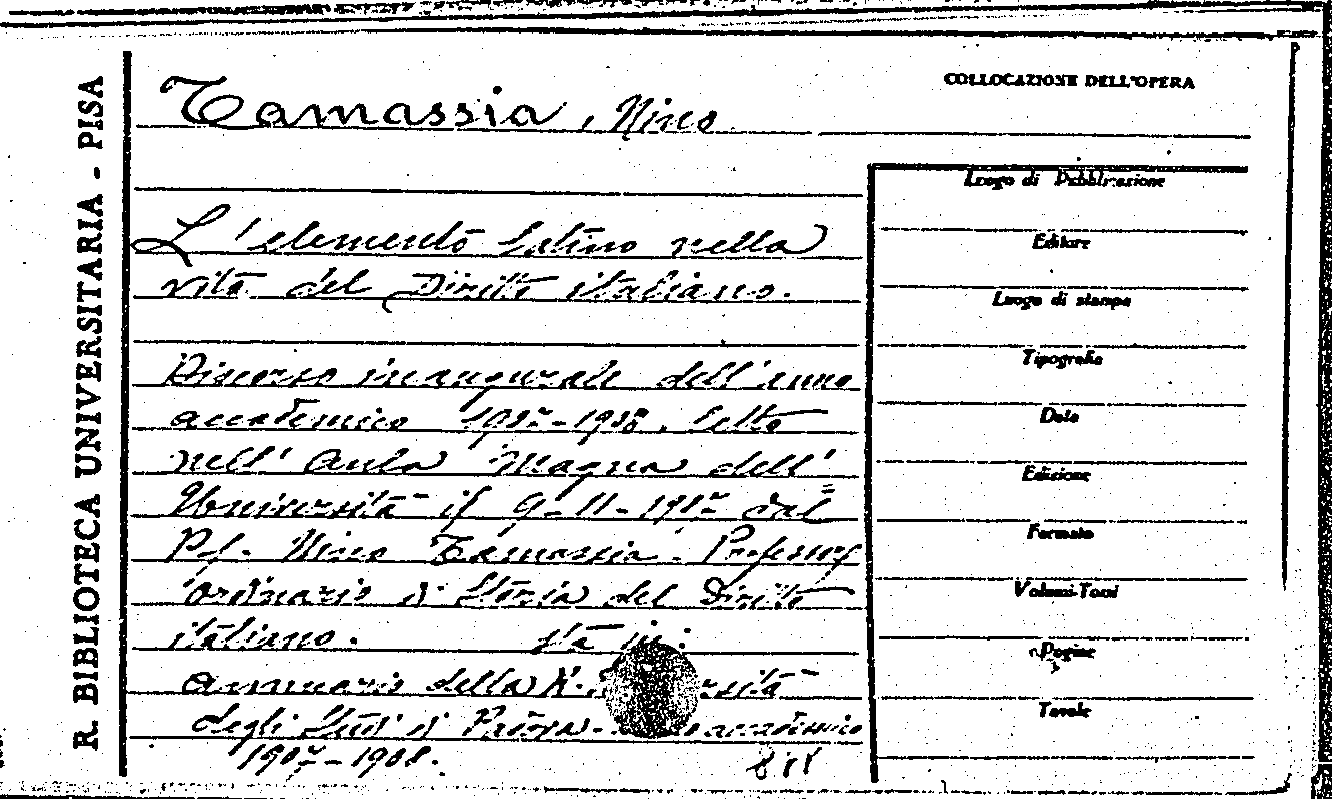 R. BIBLIOTECA UNIVERSITARIA - PISA
Tamassia, Nino
COLLOCAZIONE DELL'OPERA
L'elemento latino nella
vita del Diritto italiano.
Discorso inaugurale dell'anno
accademico 1907-1908. letto
nell'Aula Magna dell'
Università il 9-11-1907 dal
Pf. Nino Tamassia. Professore
ordinario di Storia del Diritto
italiano. sta in:
Annuario della R.
degli Studi di Padova - accademico
1907-1908.
Luogo di Pubblicazione
Editore
Luogo di stampa
Tipografia
Data
Edizione
Formato
Volumi-Tomi
Pagine
Tavole